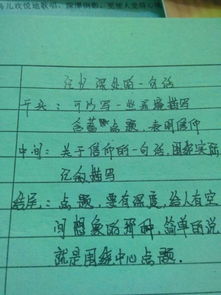 儿欢悦地歌唱
记忆深处的一句话
开头：可以写一些景物描写
含蓄点题，表明信仰
中间：关于信仰的一句话，围绕实际
记叙描写
结尾：点题，要有深度，给人有空
间想象的那种，简单的说
就是围绕中心点题．